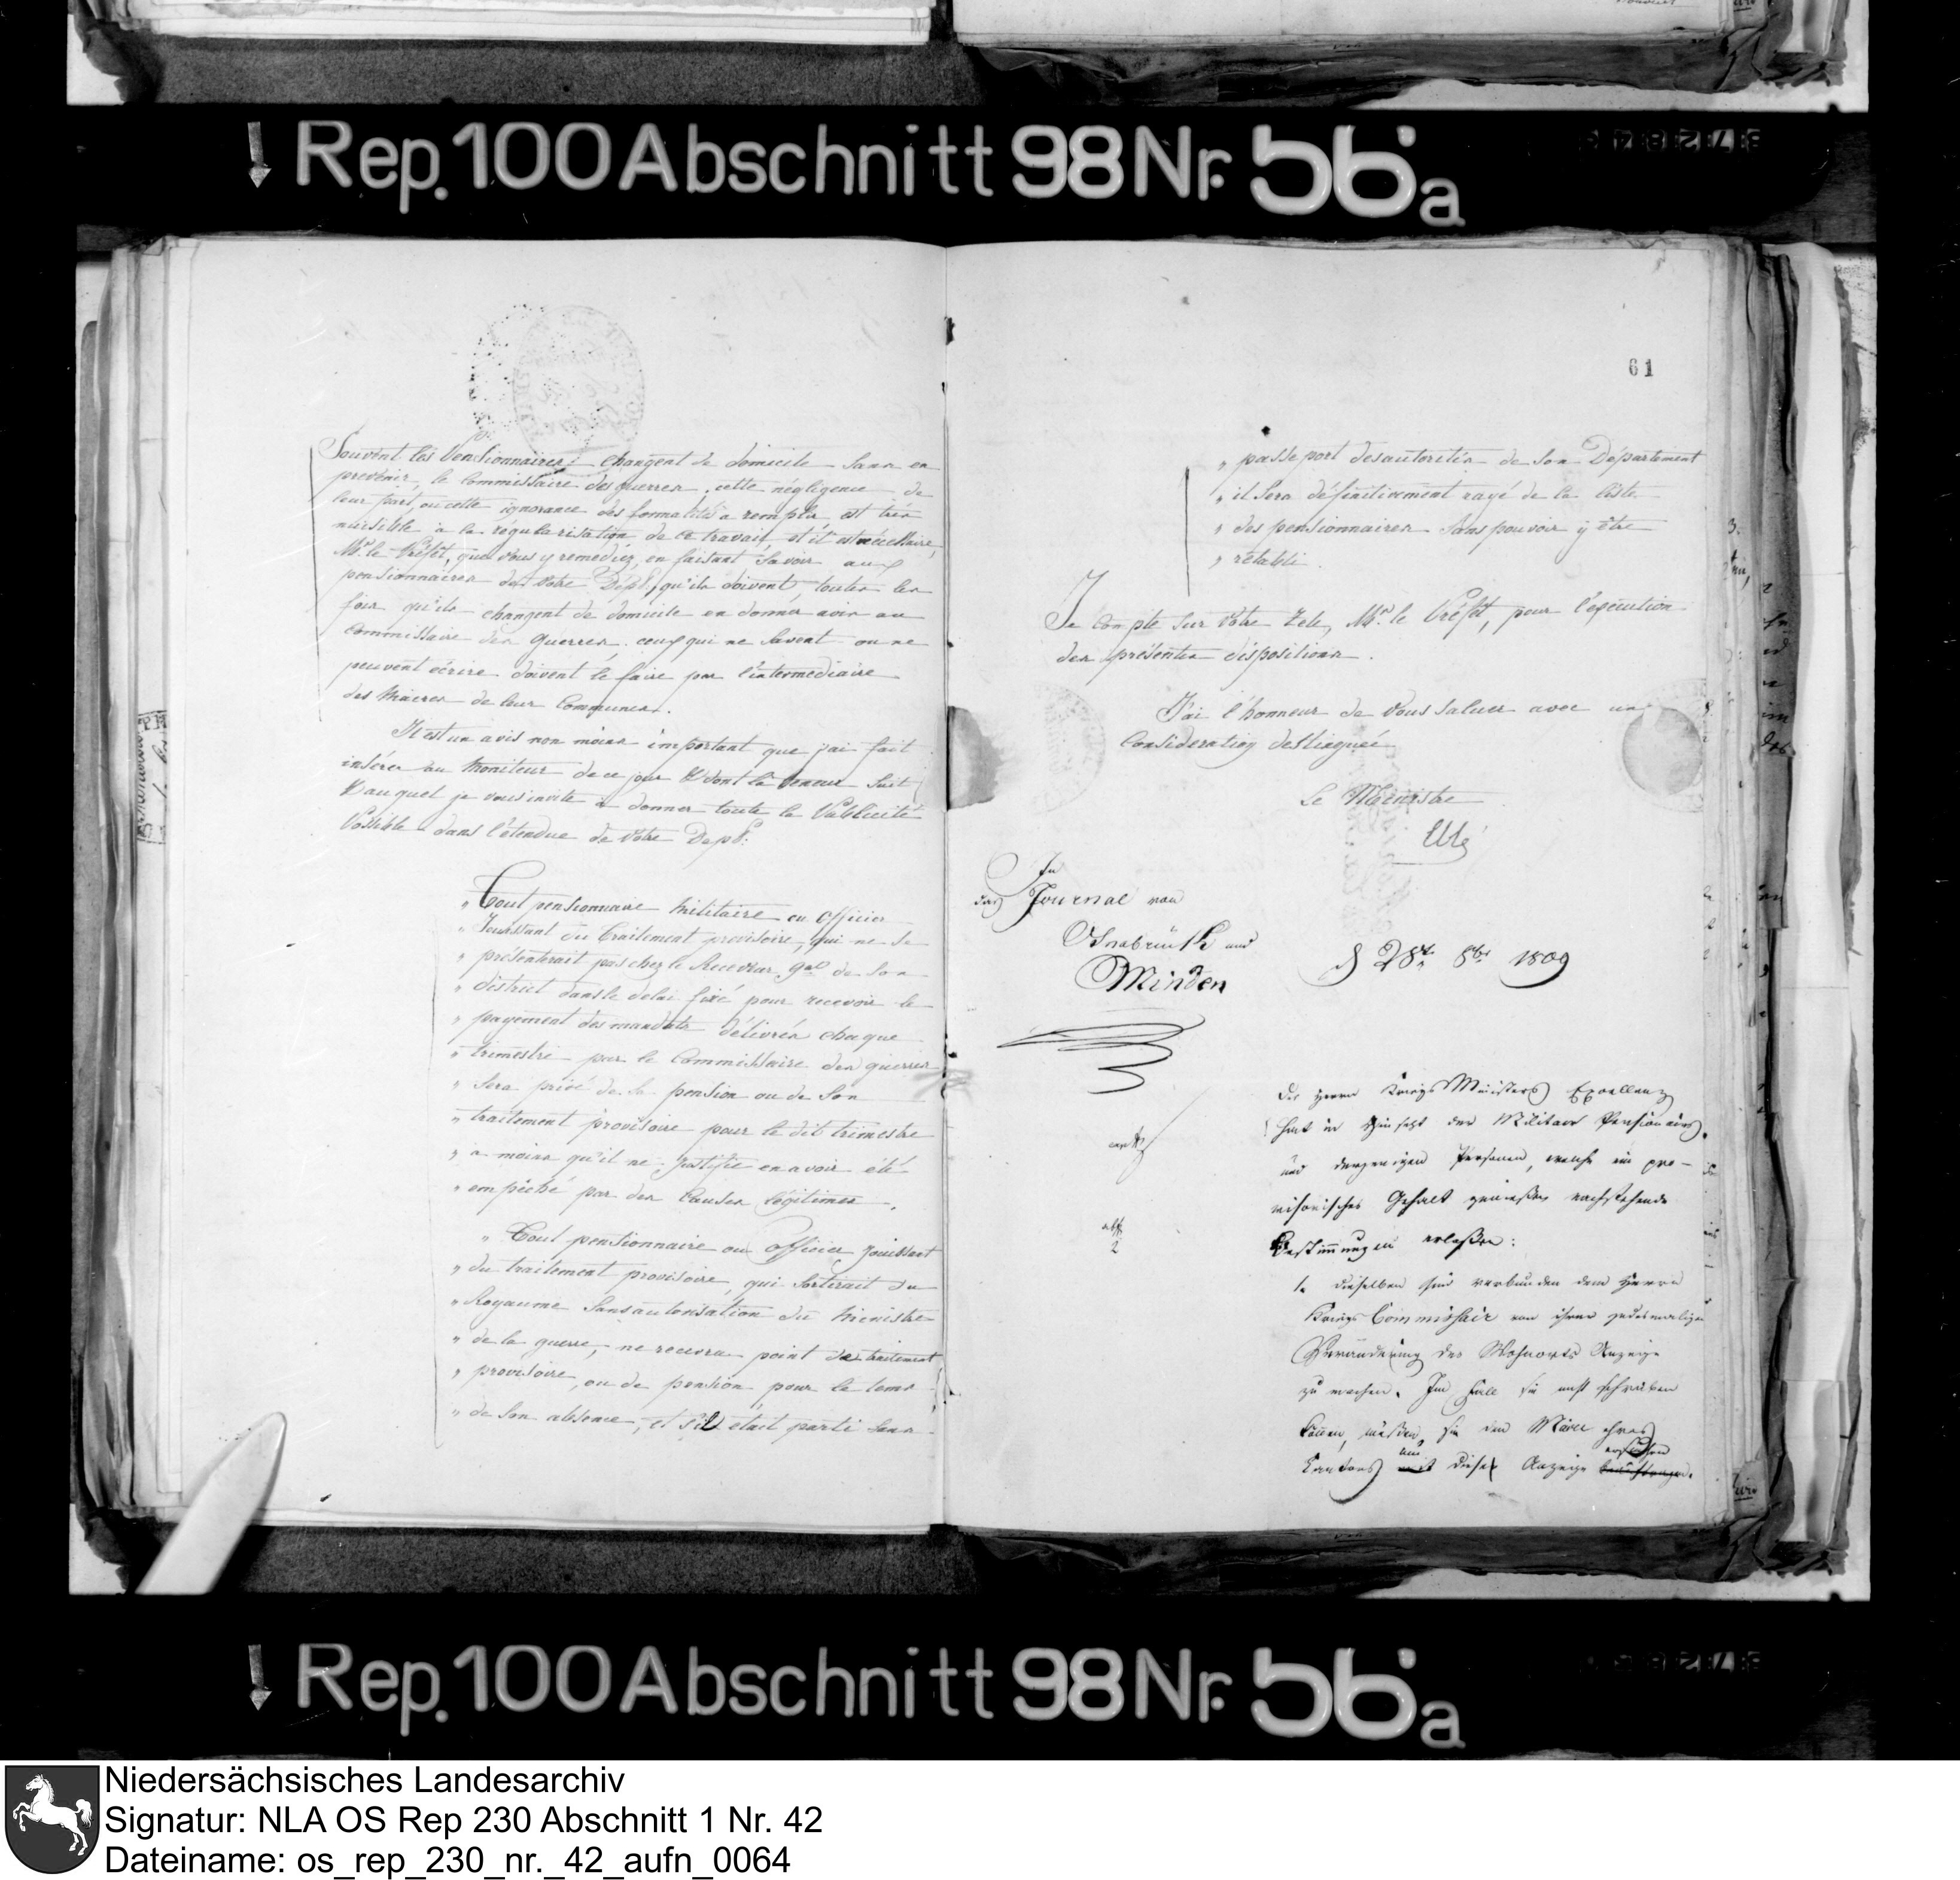 Rep. 100 Abschnitt 98 Nr. 56a
Souvent les Pensionnaires changent de domicile sans en
prevenir le Commissaire des guerres, cette négligence de
leur part, ou cette ignorance des formalités a remplir est très
nuisible a la régularisation de ce travail et il est nécessaire,
Mr. le Préfet, que vous y remediez, en faisant savoir aux
pensionnaires de votre Dépt. qu'ils doivent, toutes les
fois qu'ils changent de domicile en donner avis au
Commissaire des Guerres. ceux qui ne savent ou ne
peuvent écrire doivent le faire par l'intermédiaire
des Maires de leur Communes.
Il est un avis non moins important que j'ai fait
insérer au Moniteur de ce jour & dont la teneur suit
& auquel je vous invite a donner toute la Publicité
Possible dans l'étendue de votre Dept:
„ Tout pensionnaire militaire ou officier
„ Jouissant du traitement provisoire, qui ne se
„ présenterait pas chez le Receveur gal de son
„ district dans le delai fixé pour recevoir le
„ payement des mandats délivrés chaque
„ trimestre par le Commissaire des guerres
„ sera privé de sa pension ou de son
„ traitement provisoire pour le dit trimestre
„ a moins qu'il ne justifie en avoir été
„ empêché par des Causes légitimes.
„ Tout pensionnaire ou officier jouissant
„ du traitement provisoire, qui sortirait du
„ Royaume sans autorisation du Ministre
„ de la guerre, ne recevra point de traitement
„ provisoire, ou de pension pour le tems
„ de son absence, et s'il était parti sans
61
„ passeport des autorités de son Département
„ il sera définitivement rayé de la liste
„ des pensionnaires sans pouvoir y être
„ rétabli.
Je compte sur votre zele, Mr. le Préfet, pour l'exécution
des présentes dispositions.
J'ai l'honneur de vous saluer avec une
Consideration destinguée
Le Ministre
In
das Journal von
Osnabrück und
Minden
28t 8br 1809
Des Herrn Kriegs Ministers Excellenz
hat in Hinsicht der Militair Pensionairs,
und derjenigen Personen, welche ein pro-
visorisches Gehalt genießen nachstehende
Bestimmungen erlaßen:
1. dieselben sind verbunden dem Herrn
Kriegs Commissair von ihrer jedesmaligen
Veränderung des Wohnorts Anzeige
zu machen. Im Fall sie nicht schreiben
können, müßen sie den Maire ihres
Kantons um diese Anzeige ersuchen
Rep. 100 Abschnitt 98 Nr. 56a
Niedersächsisches Landesarchiv
Signatur: NLA OS Rep 230 Abschnitt 1 Nr. 42
Dateiname: os_rep_230_nr._42_aufn_0064